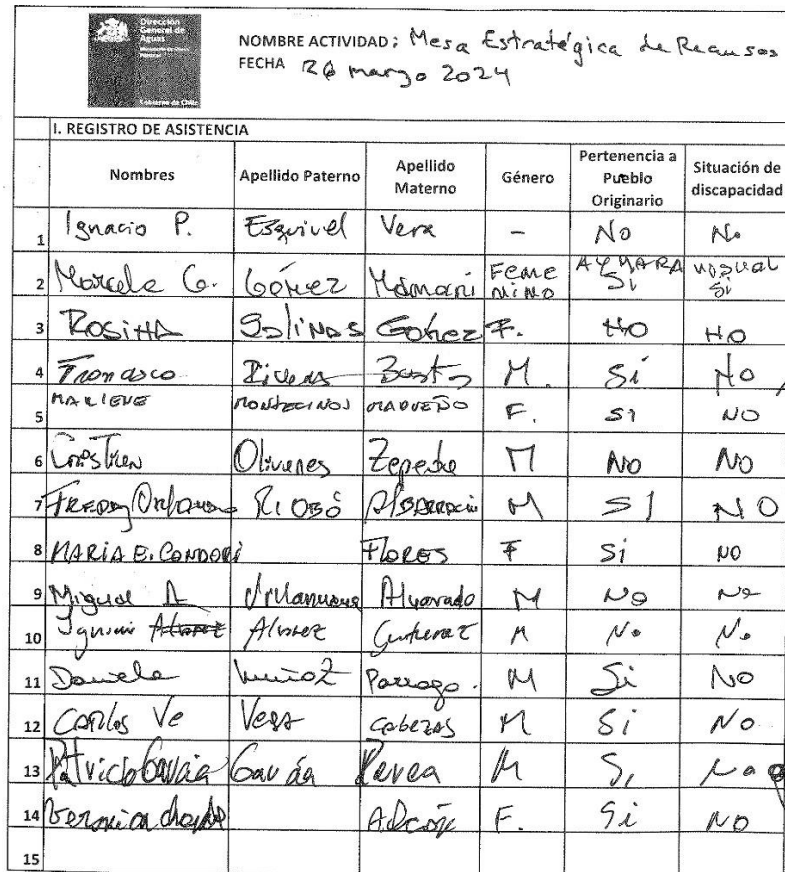 Dirección
General de
Aguas
Gobierno de Chile
NOMBRE ACTIVIDAD: Mesa Estratégica de Recursos
FECHA 26 marzo 2024
I. REGISTRO DE ASISTENCIA
Nombres Apellido Paterno Apellido Materno Género Pertenencia a Pueblo Originario Situación de discapacidad
1 Ignacio P. Esquivel Vera – No No
2 Marcela G. Gómez Mamani Femenino AYMARA Si visual si
3 ROSINA SALINAS Gomez F. NO NO
4 Francisco Rivera Bustos M. Sí No
5 MARLENE MONTECINOS MADUEÑO F. SI NO
6 Cristian Olivares Zepeda M NO NO
7 FREDDY RIOBÓ Albarracin M SI NO
8 MARIA E. CONDORI FLORES F Si NO
9 Miguel A Villanueva Alvarado M No No
10 Ignacio Alvarez Gutierrez M No No
11 Daniela Muñoz Parraga. M Si NO
12 Carlos Ve Vega Cabezas M Si NO
13 Patricio García García M Si No
14 Veronica Alcón F. Si NO
15